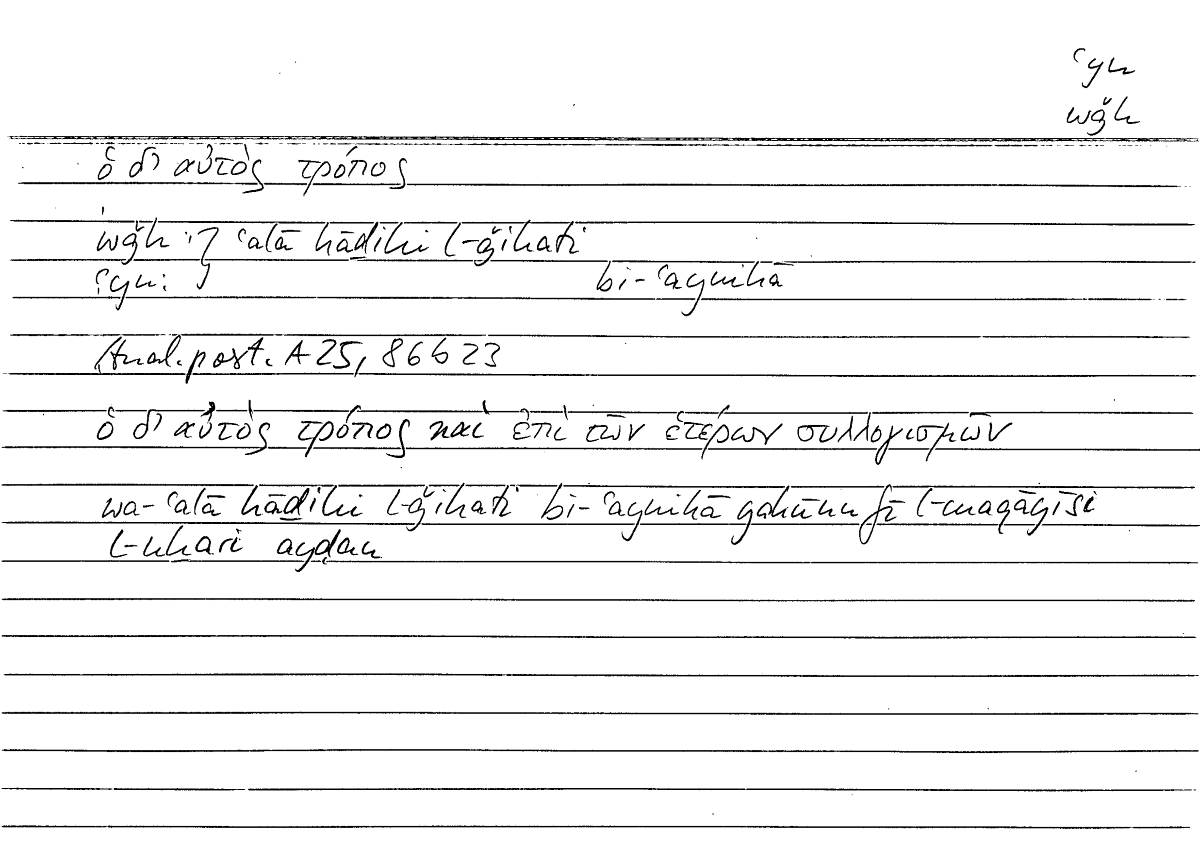 ʿyn
wǧh
ὁ δ' αὐτὸς τρόπος
wǧh :} ʿalā hāḏihi l-ǧihati
ʿyn: } bi-ʿaynihā
Anal. post. A 25, 86 b 23
ὁ δ' αὐτὸς τρόπος καὶ ἐπὶ τῶν ἑτέρων συλλογισμῶν
wa-ʿalā hāḏihi l-ǧihati bi-ʿaynihā yakūnu fī l-maqāyīsi
l-uḫari ayḍan